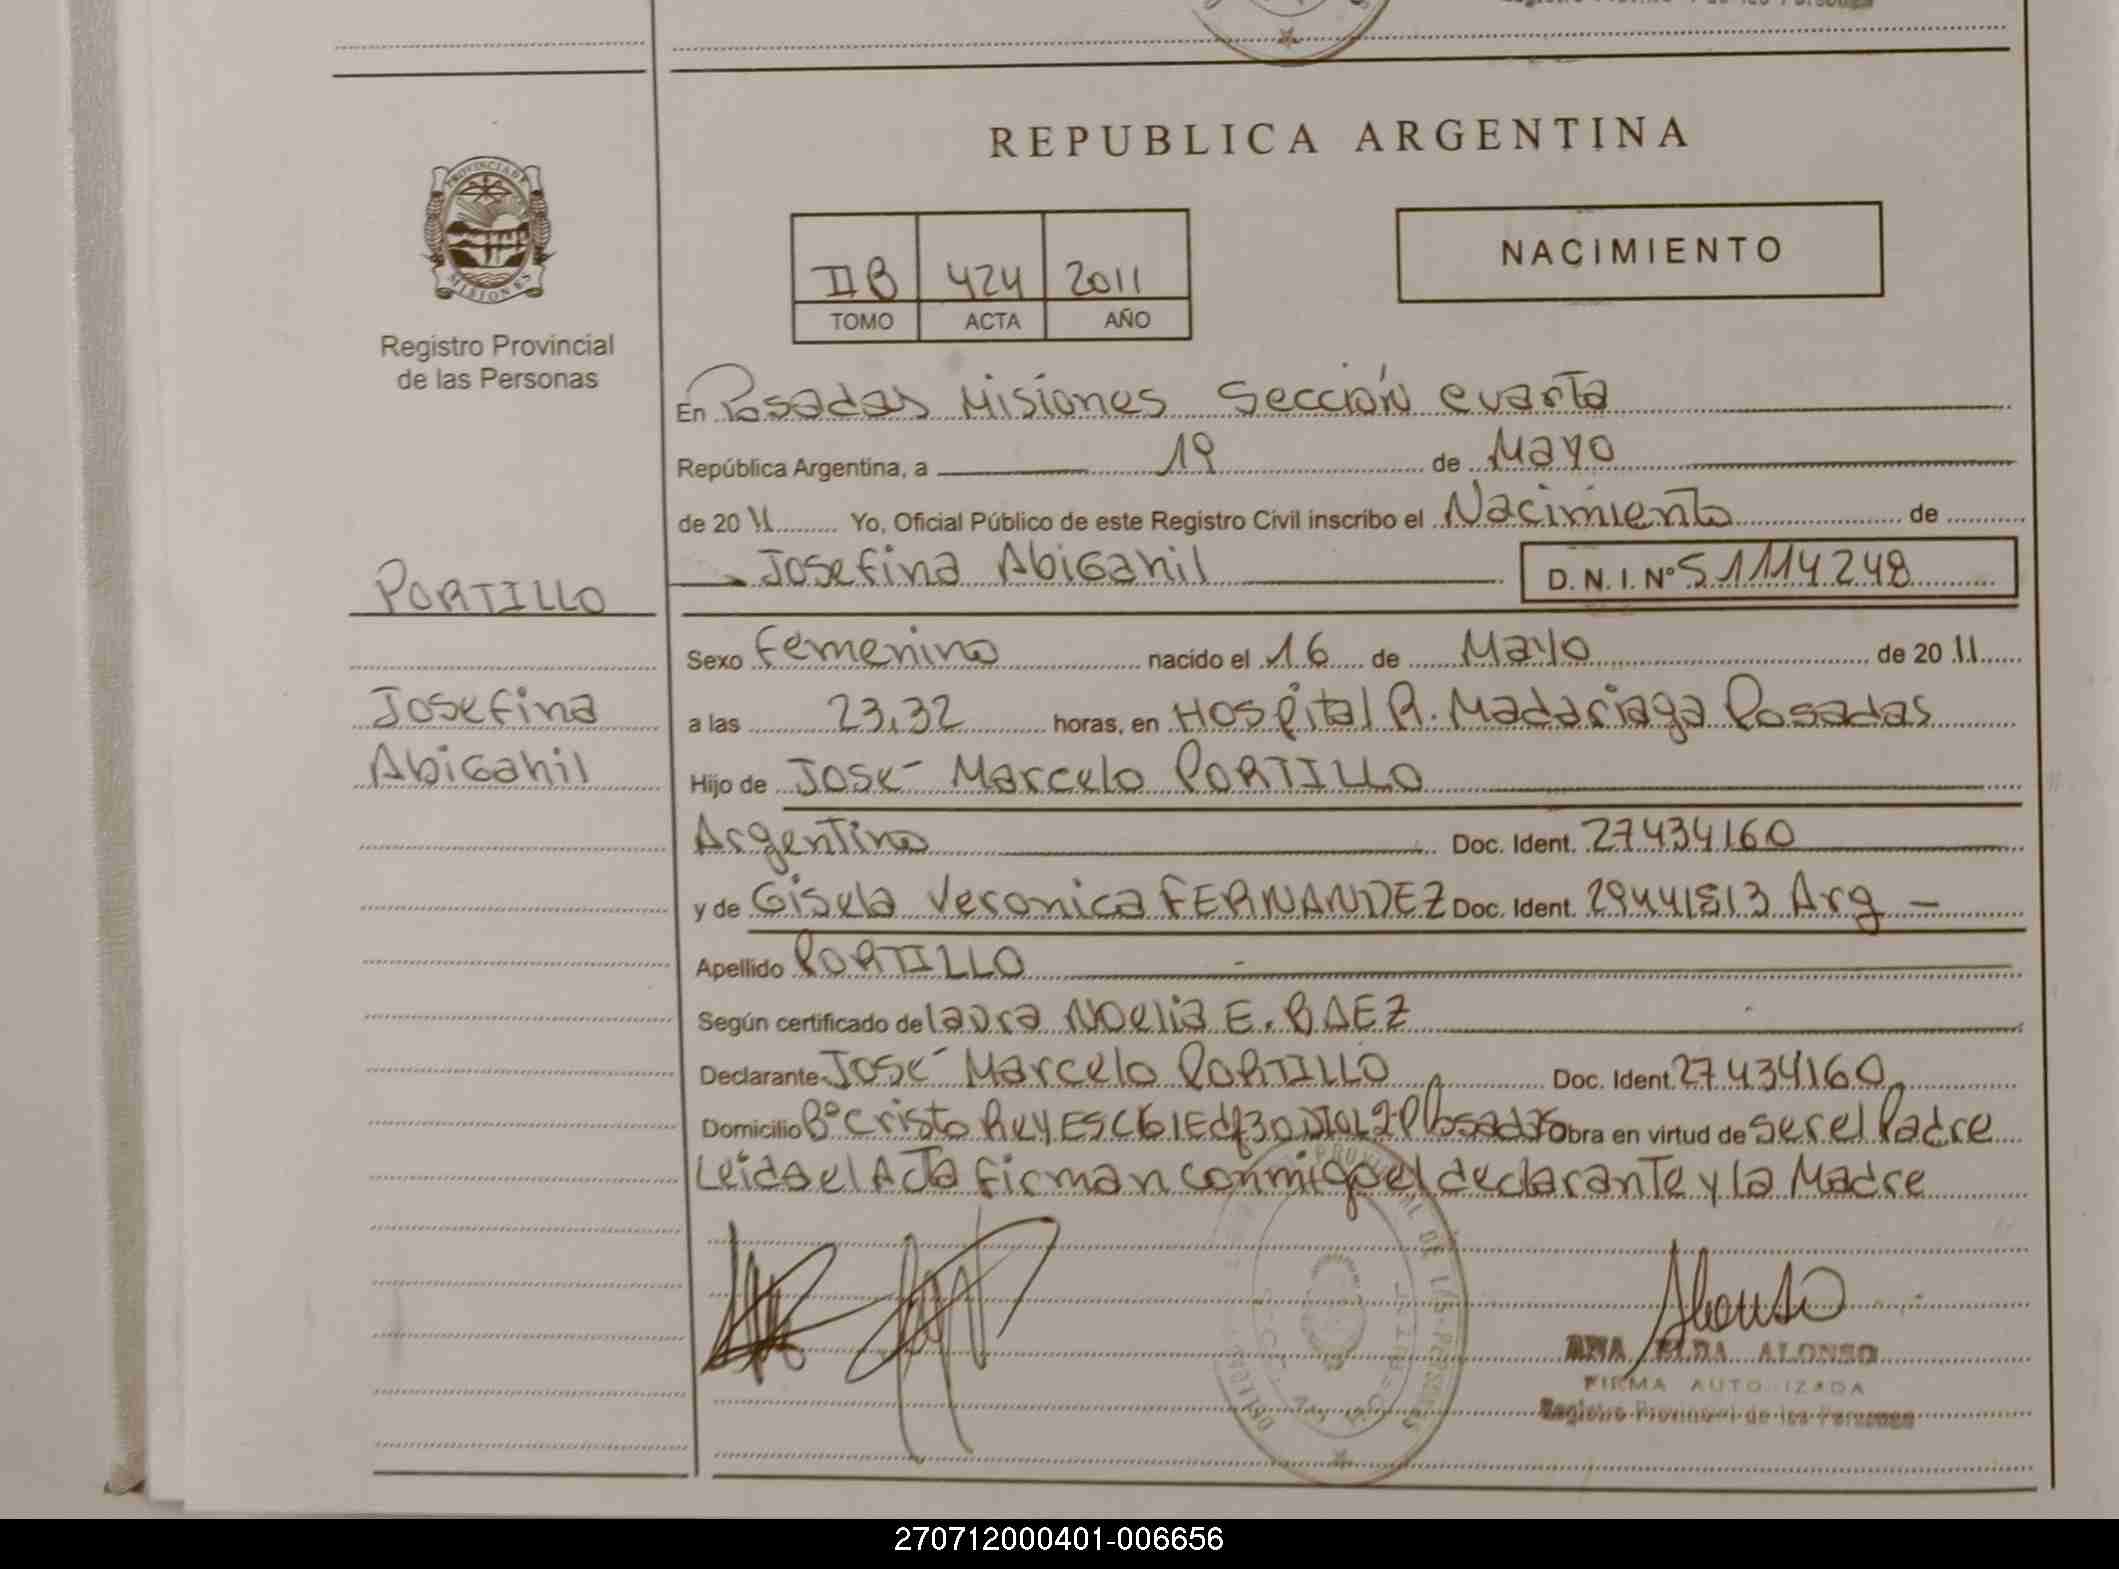 REPUBLICA ARGENTINA
PROVINCIA DE
MISIONES
Registro Provincial
de las Personas
IIB 424 2011
TOMO ACTA AÑO
NACIMIENTO
En Posadas Misiones Sección cuarta
República Argentina, a 19 de Mayo
de 2011 Yo, Oficial Público de este Registro Civil inscribo el Nacimiento de
Josefina Abigahil D.N.I.Nº 51114248
PORTILLO
Josefina
Abigahil
Sexo Femenino nacido el 16 de Mayo de 2011
a las 23,32 horas, en Hospital R. Madariaga Posadas
Hijo de José Marcelo PORTILLO
Argentino Doc. Ident. 27434160
y de Gisela Veronica FERNANDEZ Doc. Ident. 29441513 Arg -
Apellido PORTILLO
Según certificado de Laura Noelia E. BAEZ
Declarante José Marcelo PORTILLO Doc. Ident. 27434160
Domicilio Bº Cristo Rey ESC61Edf30 Posadas Obra en virtud de ser el Padre
Leida el Acta firman conmigo el declarante y la Madre
Alonso
ANA ELDA ALONSO
FIRMA AUTORIZADA
Registro Provincial de las Personas
270712000401-006656